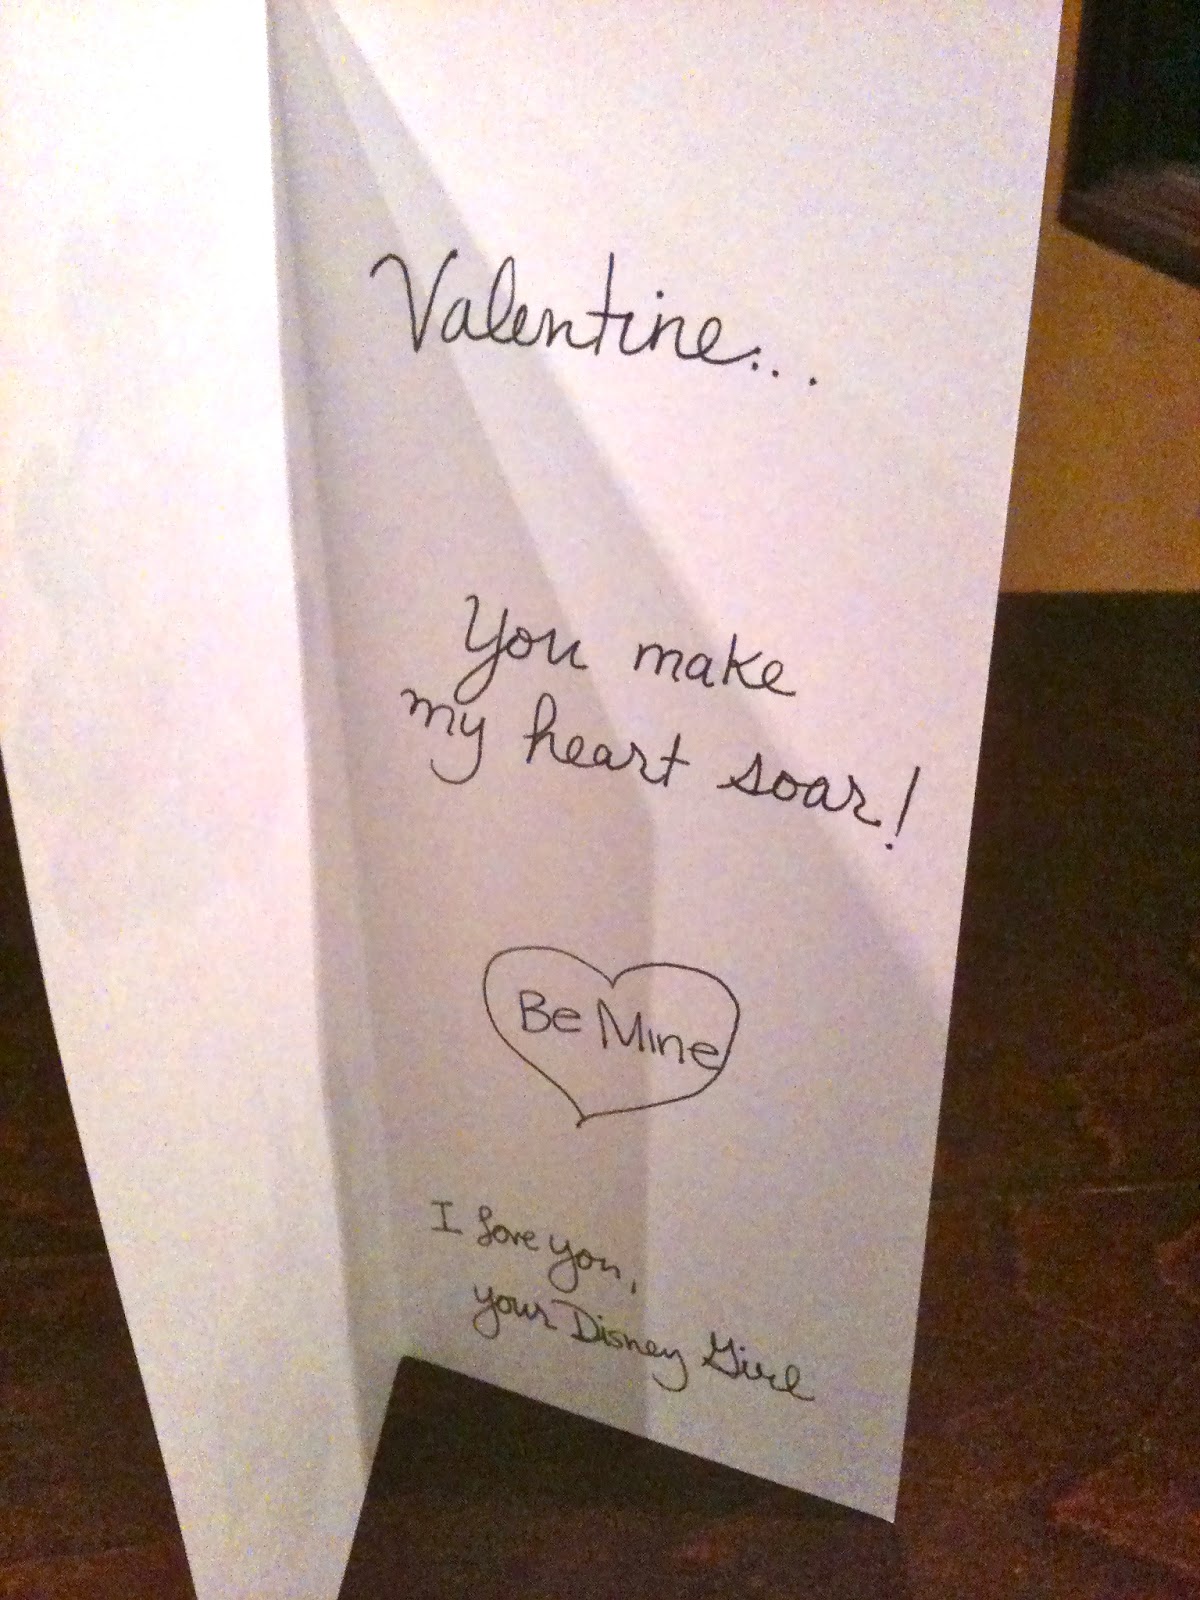 Valentine...
You make
my heart soar!
Be Mine
I love you,
your Disney Girl